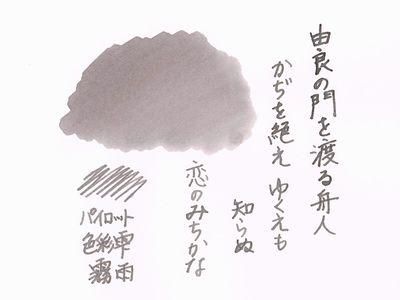 由良の門を渡る舟人
かぢを絶え ゆくえも
知らぬ
恋のみちかな
パイロット
色彩雫
霧雨